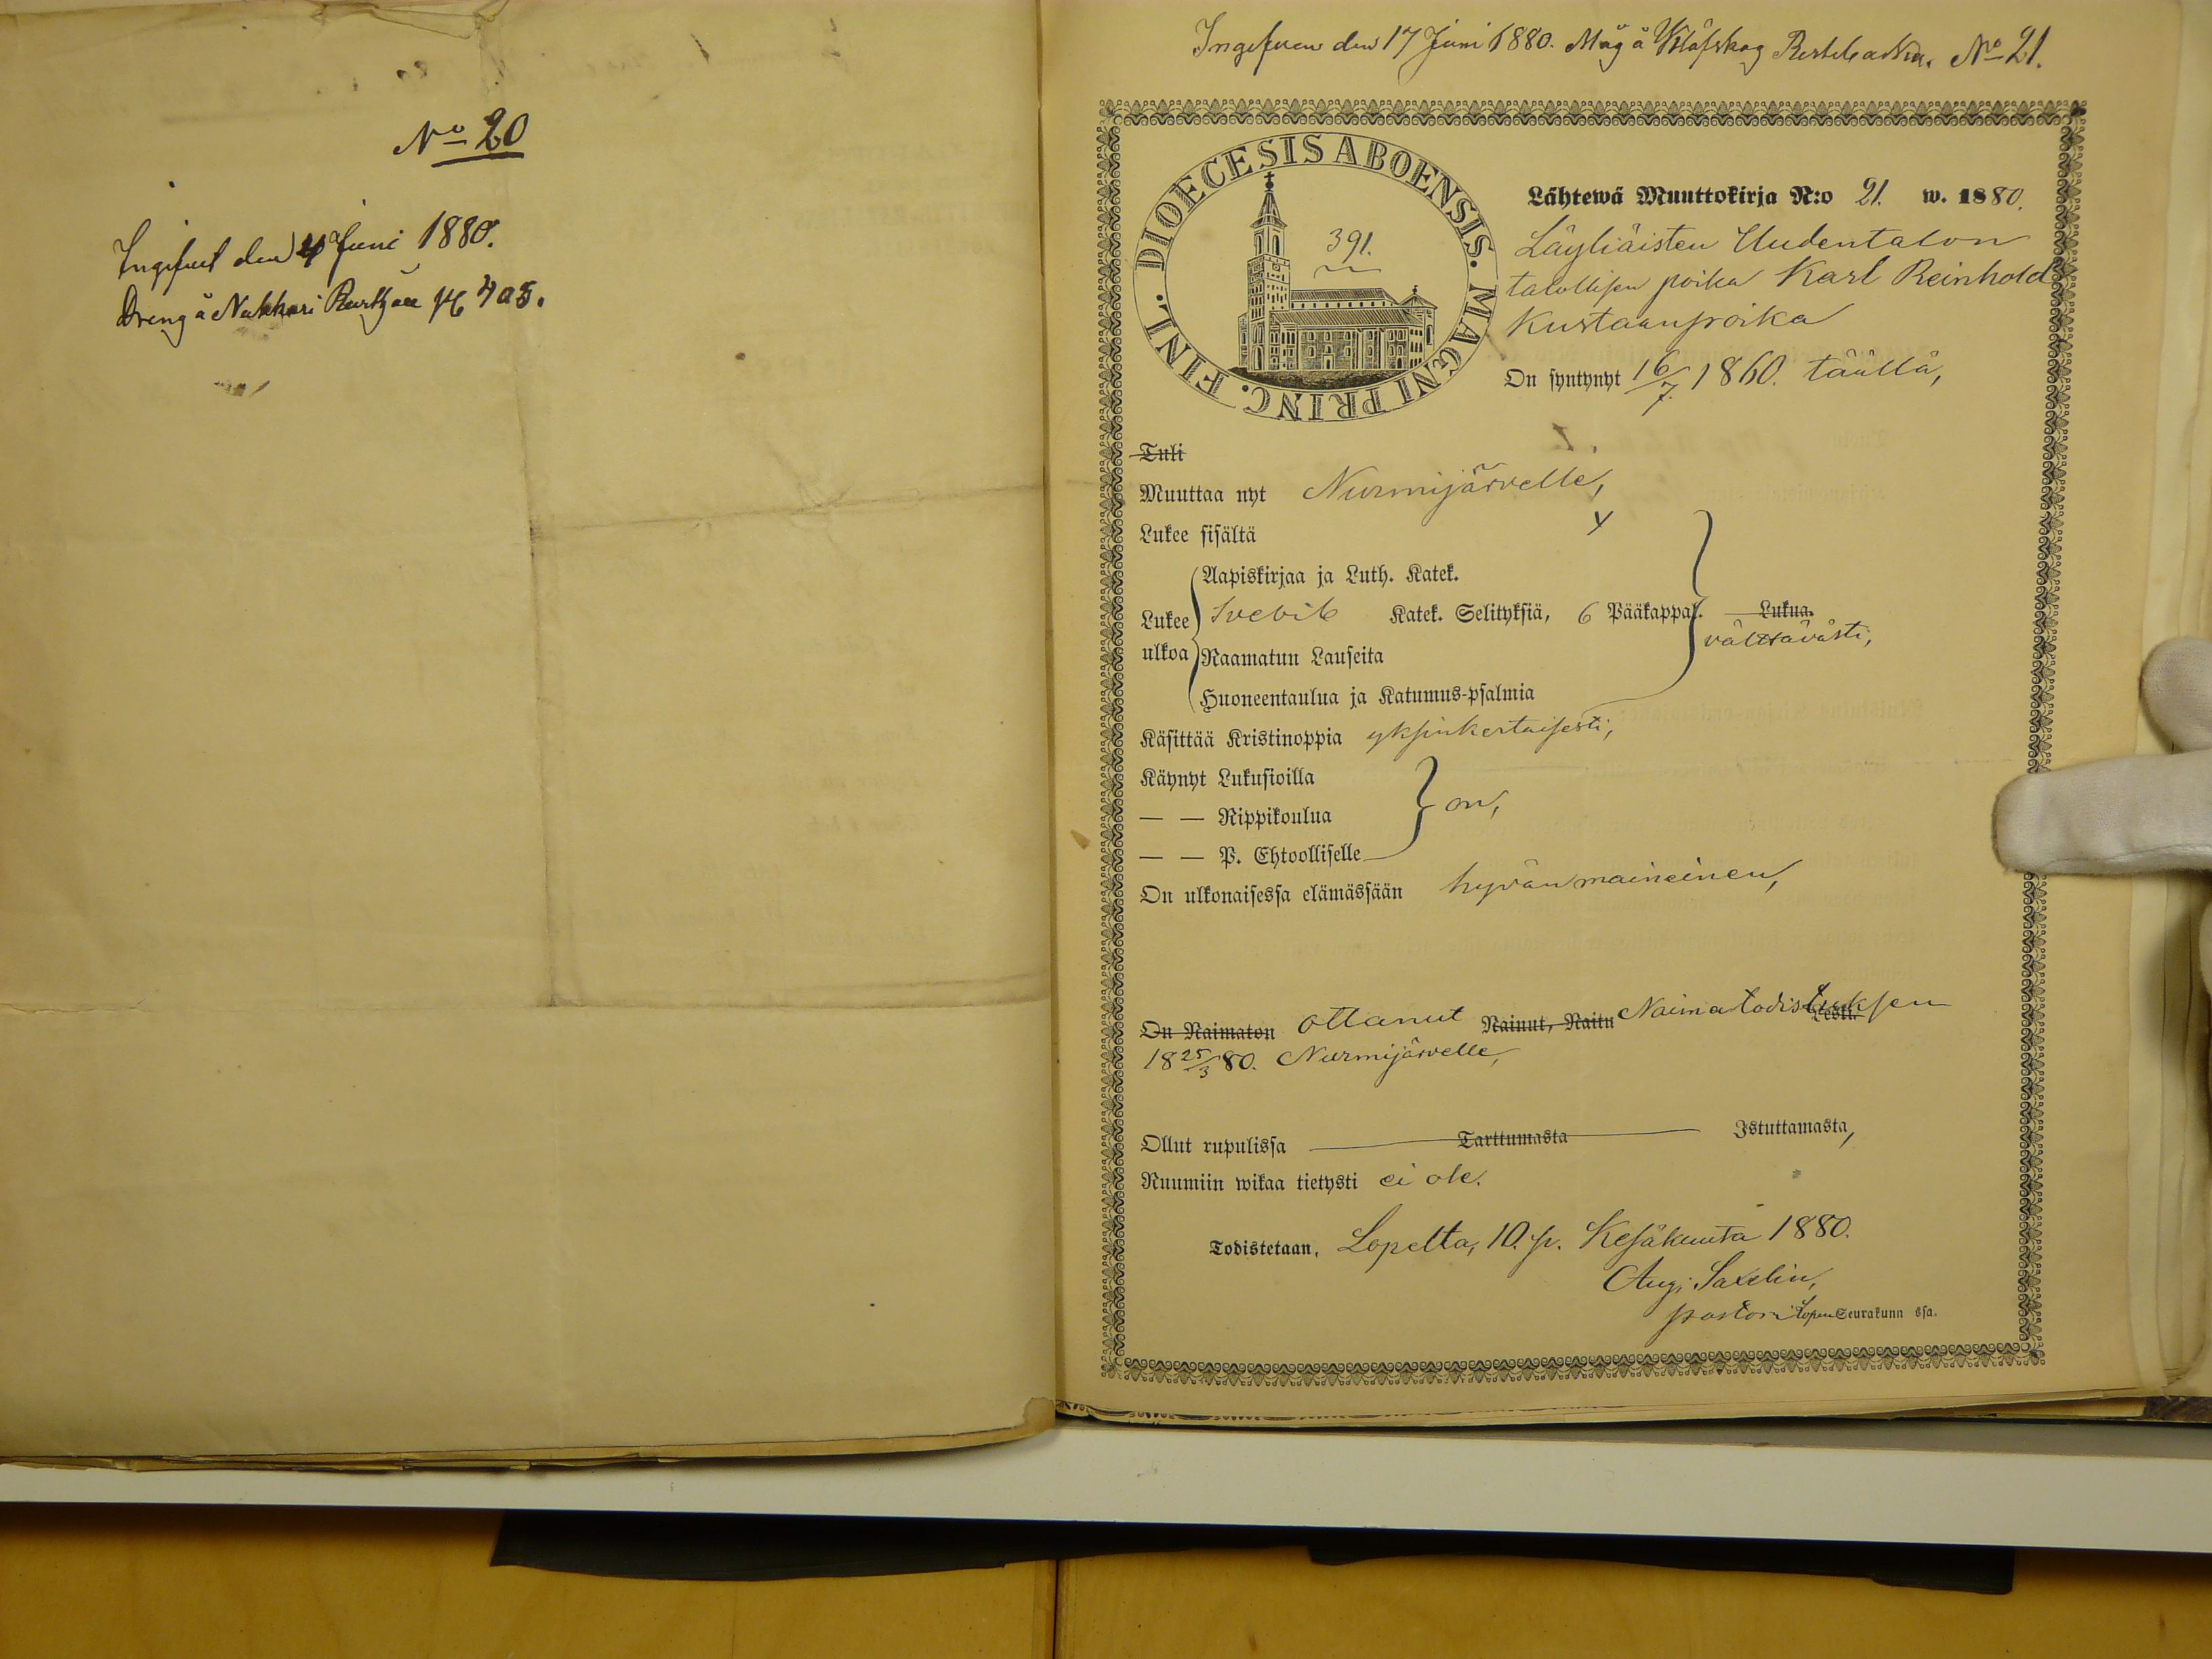 No 20
den 4 Juni 1880.
Dreng å Nukkari
den 17 Juni 1880. Måg å No 21.
DIOECESIS ABOENSIS. MAGNI PRINC. FINL.
391.
Lähtewä Muuttokirja N:o 21. w. 1880.
Läyliäisten Uudentalon
talollisen poika Karl Reinhold
Kustaanpoika
On syntynyt 16/7 1860. täällä,
Tuli
Muuttaa nyt Nurmijärvelle,
Lukee sisältä x
Lukee ulkoa
Aapiskirjaa ja Luth. Katek.
Svebil. Katek. Selityksiä, 6 Pääkappal. Lukua.
välttävästi,
Raamatun Lauseita
Huoneentaulua ja Katumus-psalmia
Käsittää Kristinoppia yksinkertaisesti,
Käynyt Lukusioilla
— — Rippikoulua on,
— — P. Ehtoolliselle
On ulkonaisessa elämässään hyvänmaineinen,
On Naimaton ottanut Nainut, Naitu Naimatodistuksen Leski.
18 25/3 80. Nurmijärvelle,
Ollut rupulissa Tarttumasta Istuttamasta,
Ruumiin wikaa tietysti ei ole.
Todistetaan, Lopelta, 10. p. Kesäkuuta 1880.
Aug. Saxelin,
pastori Lopen Seurakunn ssa.